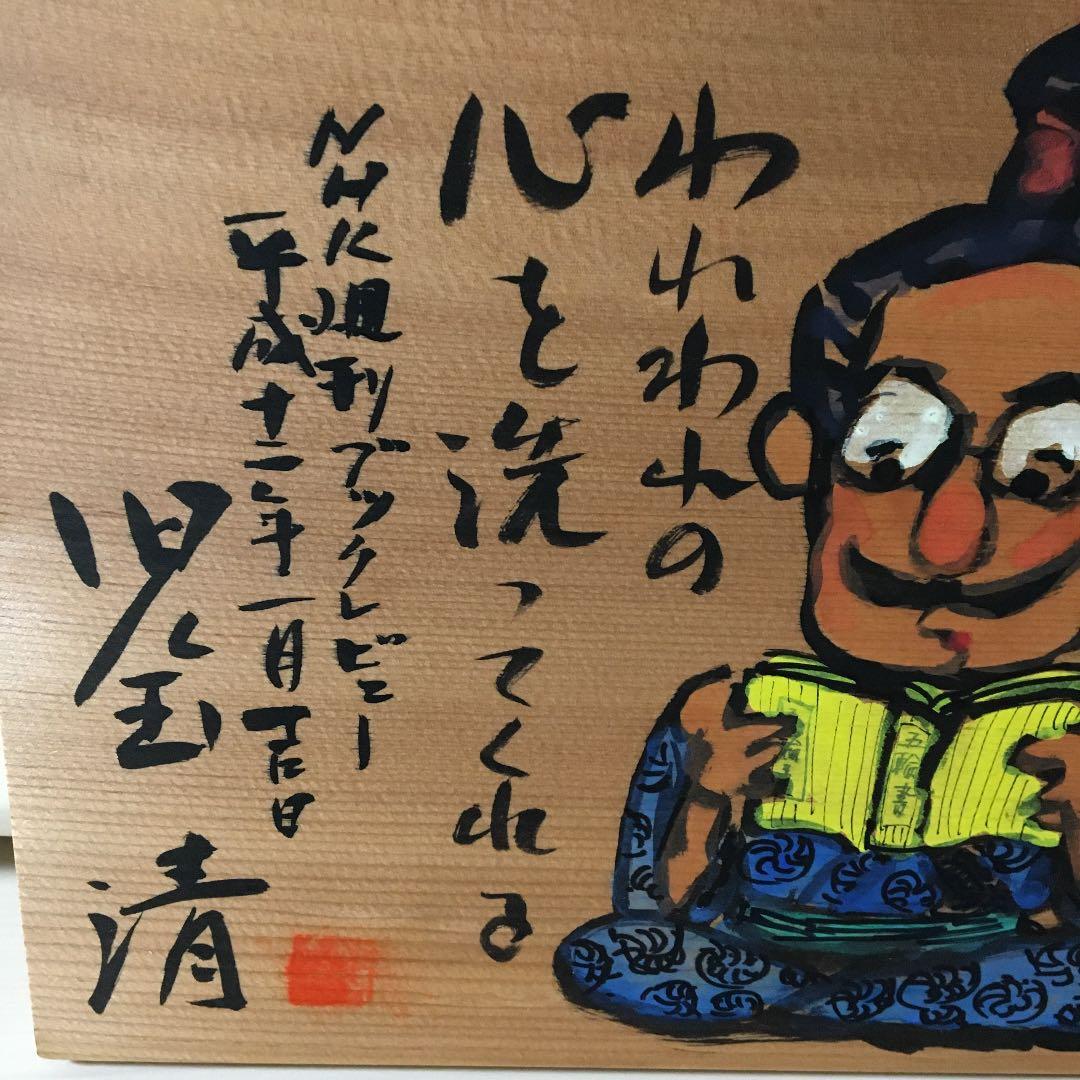 われわれの
心を洗ってくれる
NHK週刊ブックレビュー
平成十二年一月吉日
児玉
清
五輪書